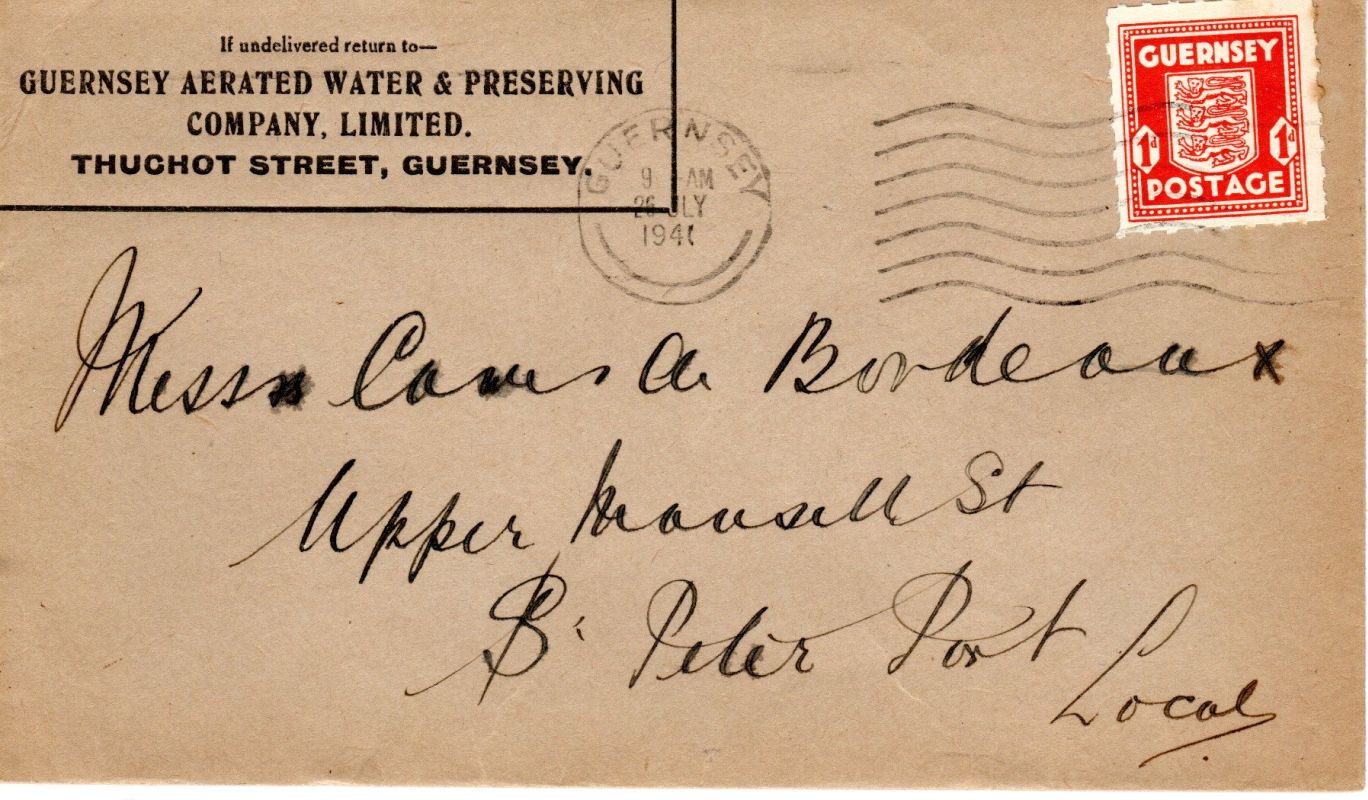 If undelivered return to—
GUERNSEY AERATED WATER & PRESERVING
COMPANY, LIMITED.
THUCHOT STREET, GUERNSEY.
GUERNSEY
9 - AM
26 JLY
1941
GUERNSEY
1d 1d
POSTAGE
Messrs Bordeaux
Upper Mansell St
St Peter Port
Local